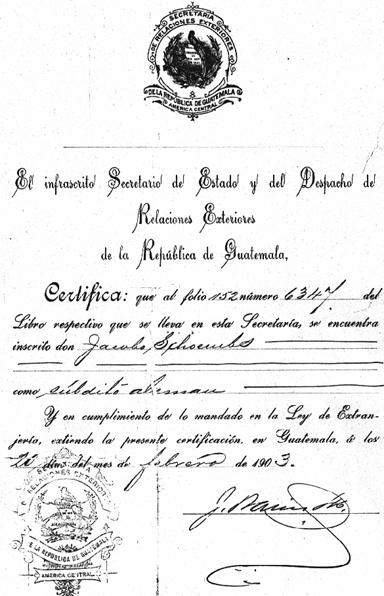 SECRETARIA
DE RELACIONES EXTERIORES
DE LA REPUBLICA DE GUATEMALA
AMERICA CENTRAL
El infrascrito Secretario de Estado y del Despacho de
Relaciones Exteriores
de la República de Guatemala,
Certifica: que al folio 152 número 6347 del
Libro respectivo que se lleva en esta Secretaría, se encuentra
inscrito don Jacobo
como súbdito aleman
Y en cumplimiento de lo mandado en la Ley de Extran-
jería, extiendo la presente certificación, en Guatemala, á los
días del mes de febrero de 1903.
SECRETARIA
DE RELACIONES EXTERIOR
E LA REPUBLICA DE GUATEMALA
AMERICA CENTRAL